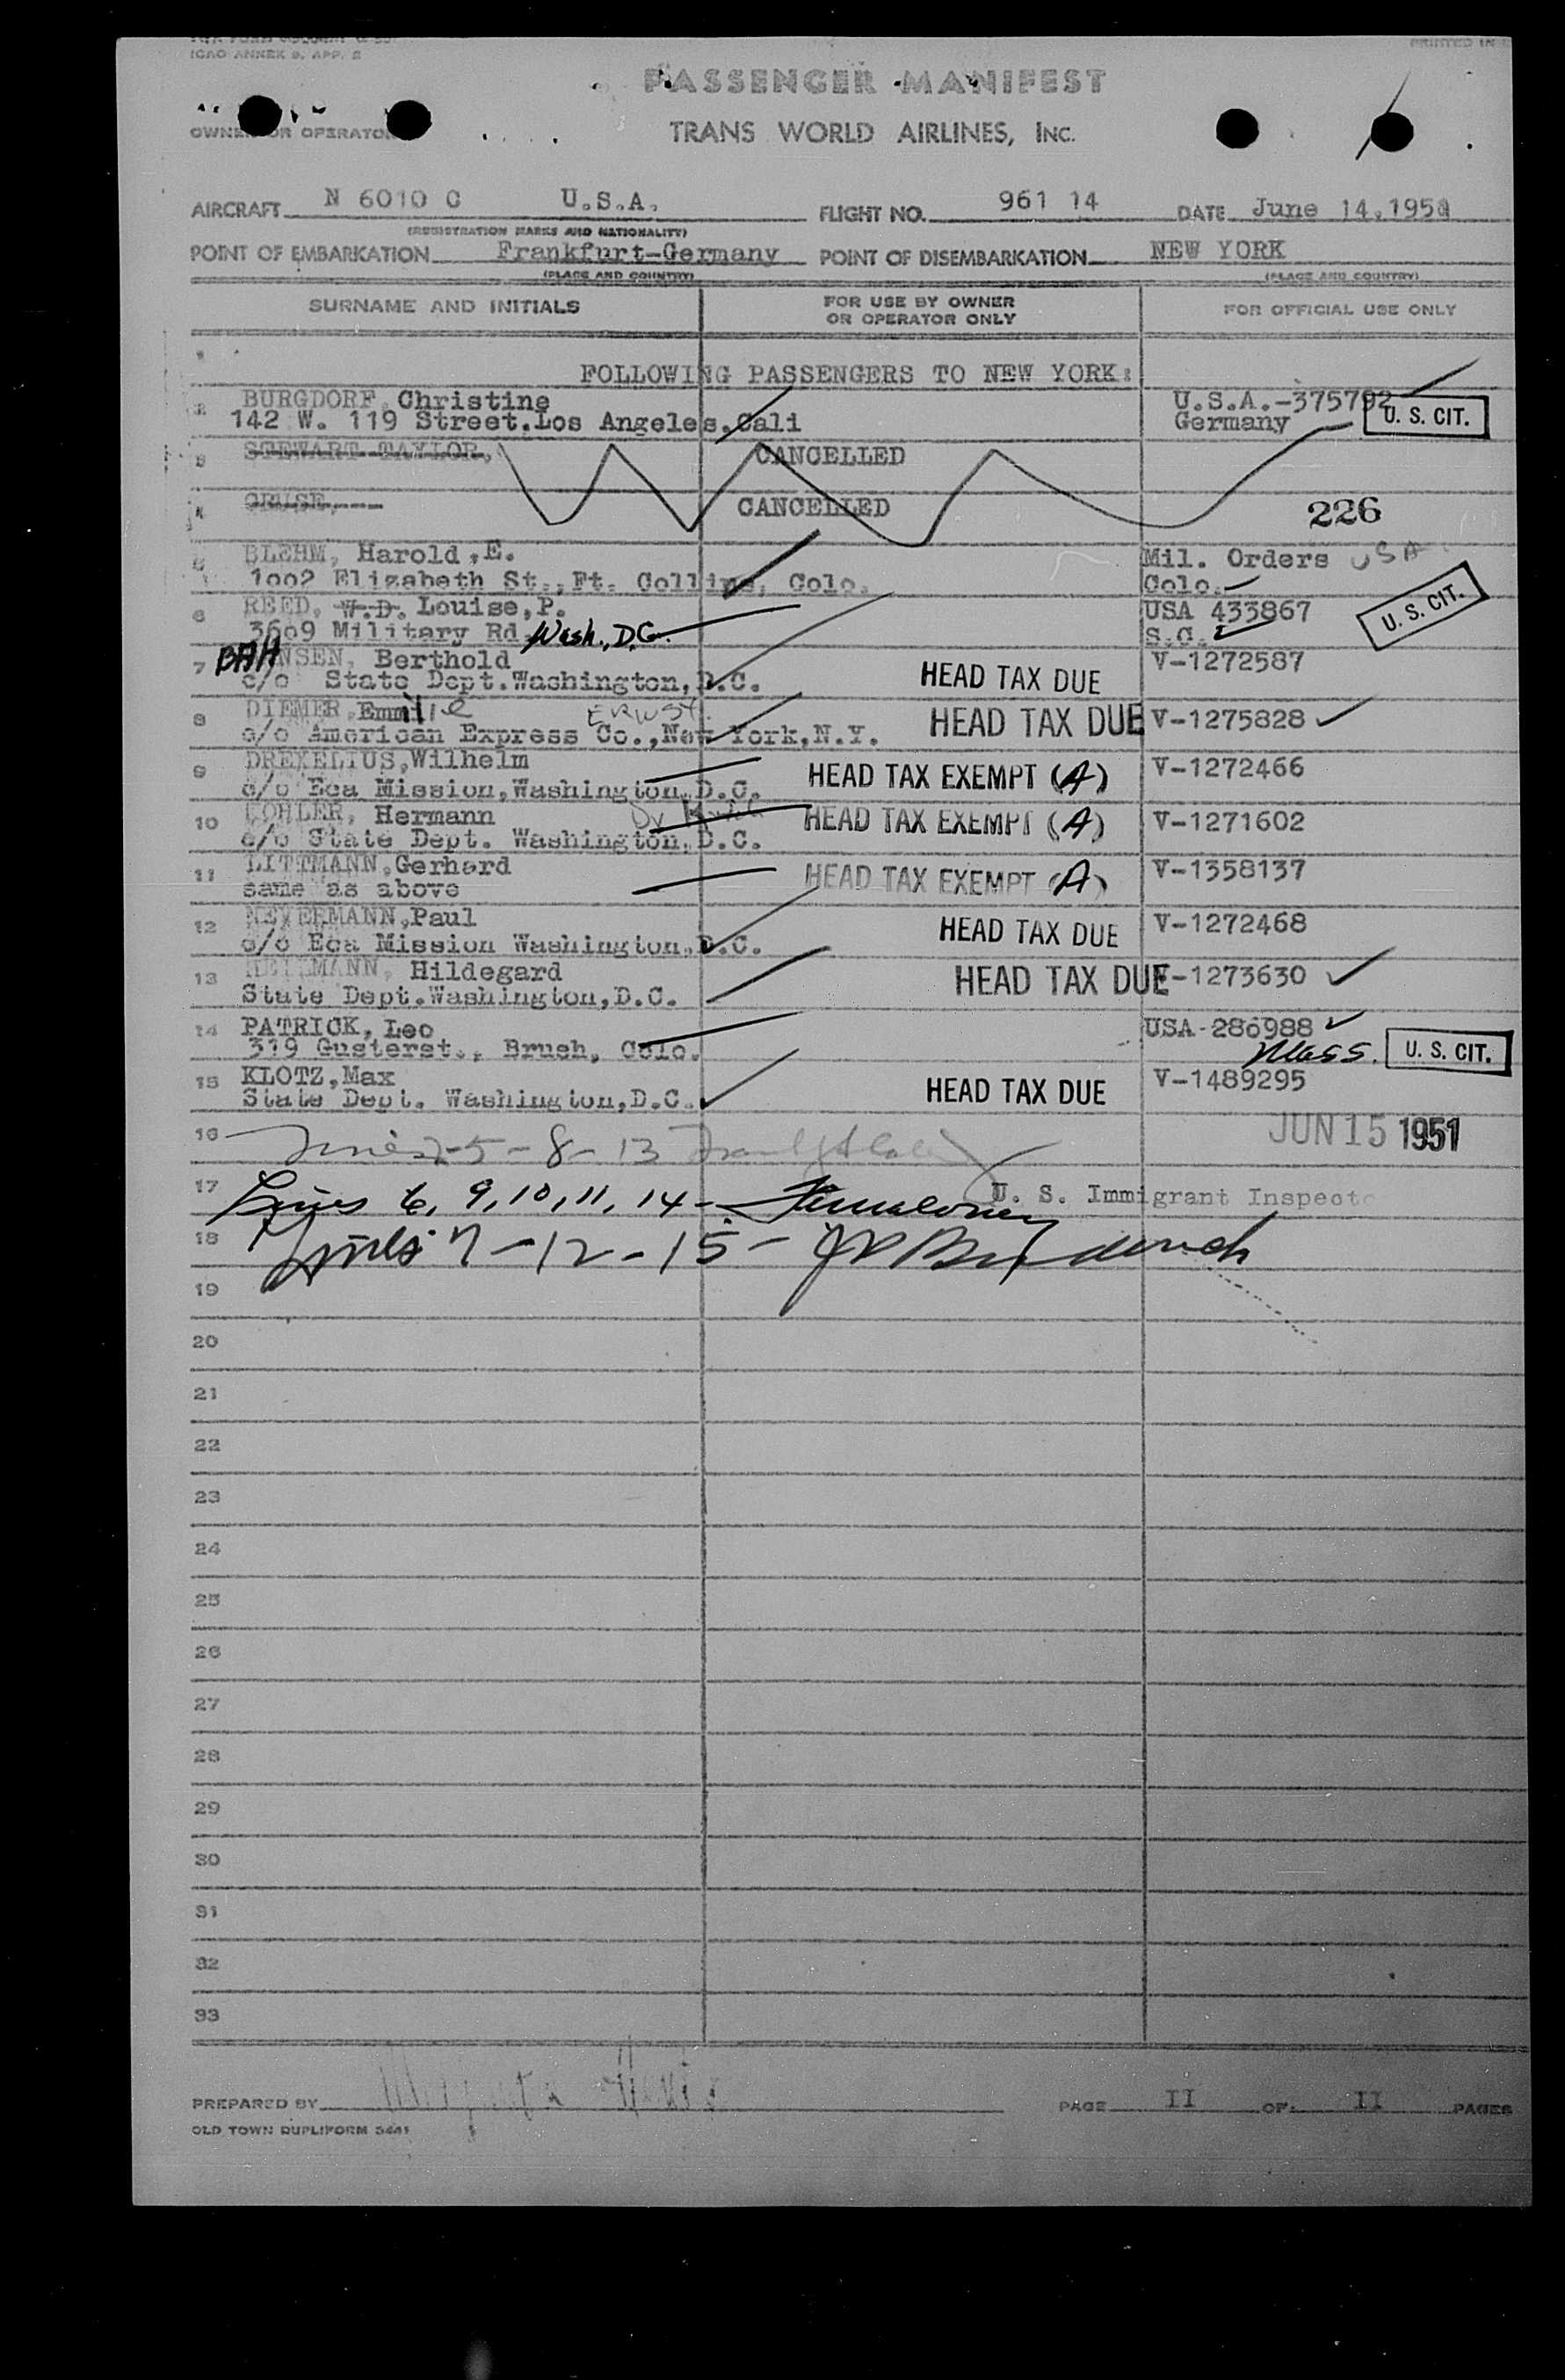 ICAO ANNEX 9, APP. 2
PRINTED IN
PASSENGER MANIFEST
OWNER OR OPERATOR
TRANS WORLD AIRLINES, INC.
AIRCRAFT N 6010 C U.S.A. FLIGHT NO. 961 14 DATE June 14.195
(REGISTRATION MARKS AND NATIONALITY)
POINT OF EMBARKATION Frankfurt-Germany POINT OF DISEMBARKATION NEW YORK
(PLACE AND COUNTRY) (PLACE AND COUNTRY)
SURNAME AND INITIALS FOR USE BY OWNER OR OPERATOR ONLY FOR OFFICIAL USE ONLY
1 FOLLOWING PASSENGERS TO NEW YORK:
2 BURGDORF, Christine U.S.A.-375792
142 W. 119 Street.Los Angeles.Cali Germany U. S. CIT.
3 STEWART TAYLOR, CANCELLED
4 CRUSE,--- CANCELLED 226
5 BLEHM, Harold,E. Mil. Orders USA
1002 Elizabeth St., Ft. Collins, Colo. Colo.
6 REED, W.D. Louise,P. USA 433867 U. S. CIT.
3609 Military Rd. Wash., D.C. S.C.
7 BAHNSEN, Berthold HEAD TAX DUE V-1272587
c/o State Dept.Washington,D.C.
8 DIEMER, Emmilie ERNST HEAD TAX DUE V-1275828
c/o American Express Co.,New York,N.Y.
9 DREXELIUS,Wilhelm HEAD TAX EXEMPT (A) V-1272466
c/o Eca Mission,Washington.D.C.
10 KOHLER, Hermann HEAD TAX EXEMPT (A) V-1271602
c/o State Dept. Washington.D.C.
11 LITTMANN,Gerhard HEAD TAX EXEMPT (A) V-1358137
same as above
12 NEVERMANN,Paul HEAD TAX DUE V-1272468
c/o Eca Mission Washington.D.C.
13 Hildegard HEAD TAX DUE V-1273630
State Dept.Washington,D.C.
14 PATRICK, Leo USA-280988
319 Gusterst., Brush, Colo. Mass. U. S. CIT.
15 KLOTZ,Max HEAD TAX DUE V-1489295
State Dept. Washington,D.C.
16 Lines 2-5-8-13 JUN 15 1951
17 Lines 6, 9, 10, 11, 14 - U. S. Immigrant Inspecto
18 Lines 7-12-15-
19
20
21
22
23
24
25
26
27
28
29
30
31
32
33
PREPARED BY PAGE II OF II PAGES
OLD TOWN DUPLIFORM